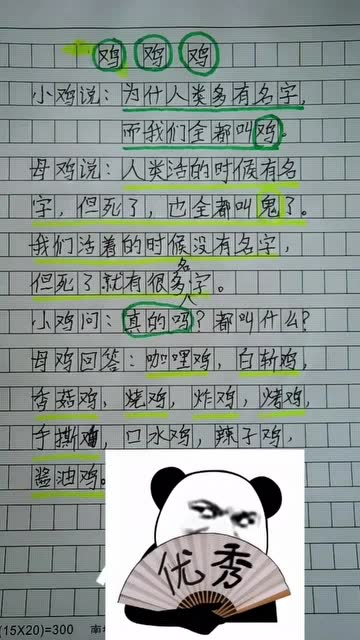 鸡 鸡 鸡
小鸡说：为什人类多有名字，
而我们全都叫鸡。
母鸡说：人类活的时候有名
字，但死了，也全都叫鬼了。
我们活着的时候没有名字，
但死了就有很多名字。
小鸡问：真的吗？都叫什么？
母鸡回答：咖哩鸡，白斩鸡，
香菇鸡，烧鸡，炸鸡，烤鸡，
手撕鸡，口水鸡，辣子鸡，
酱油鸡。
优秀
(15X20)=300